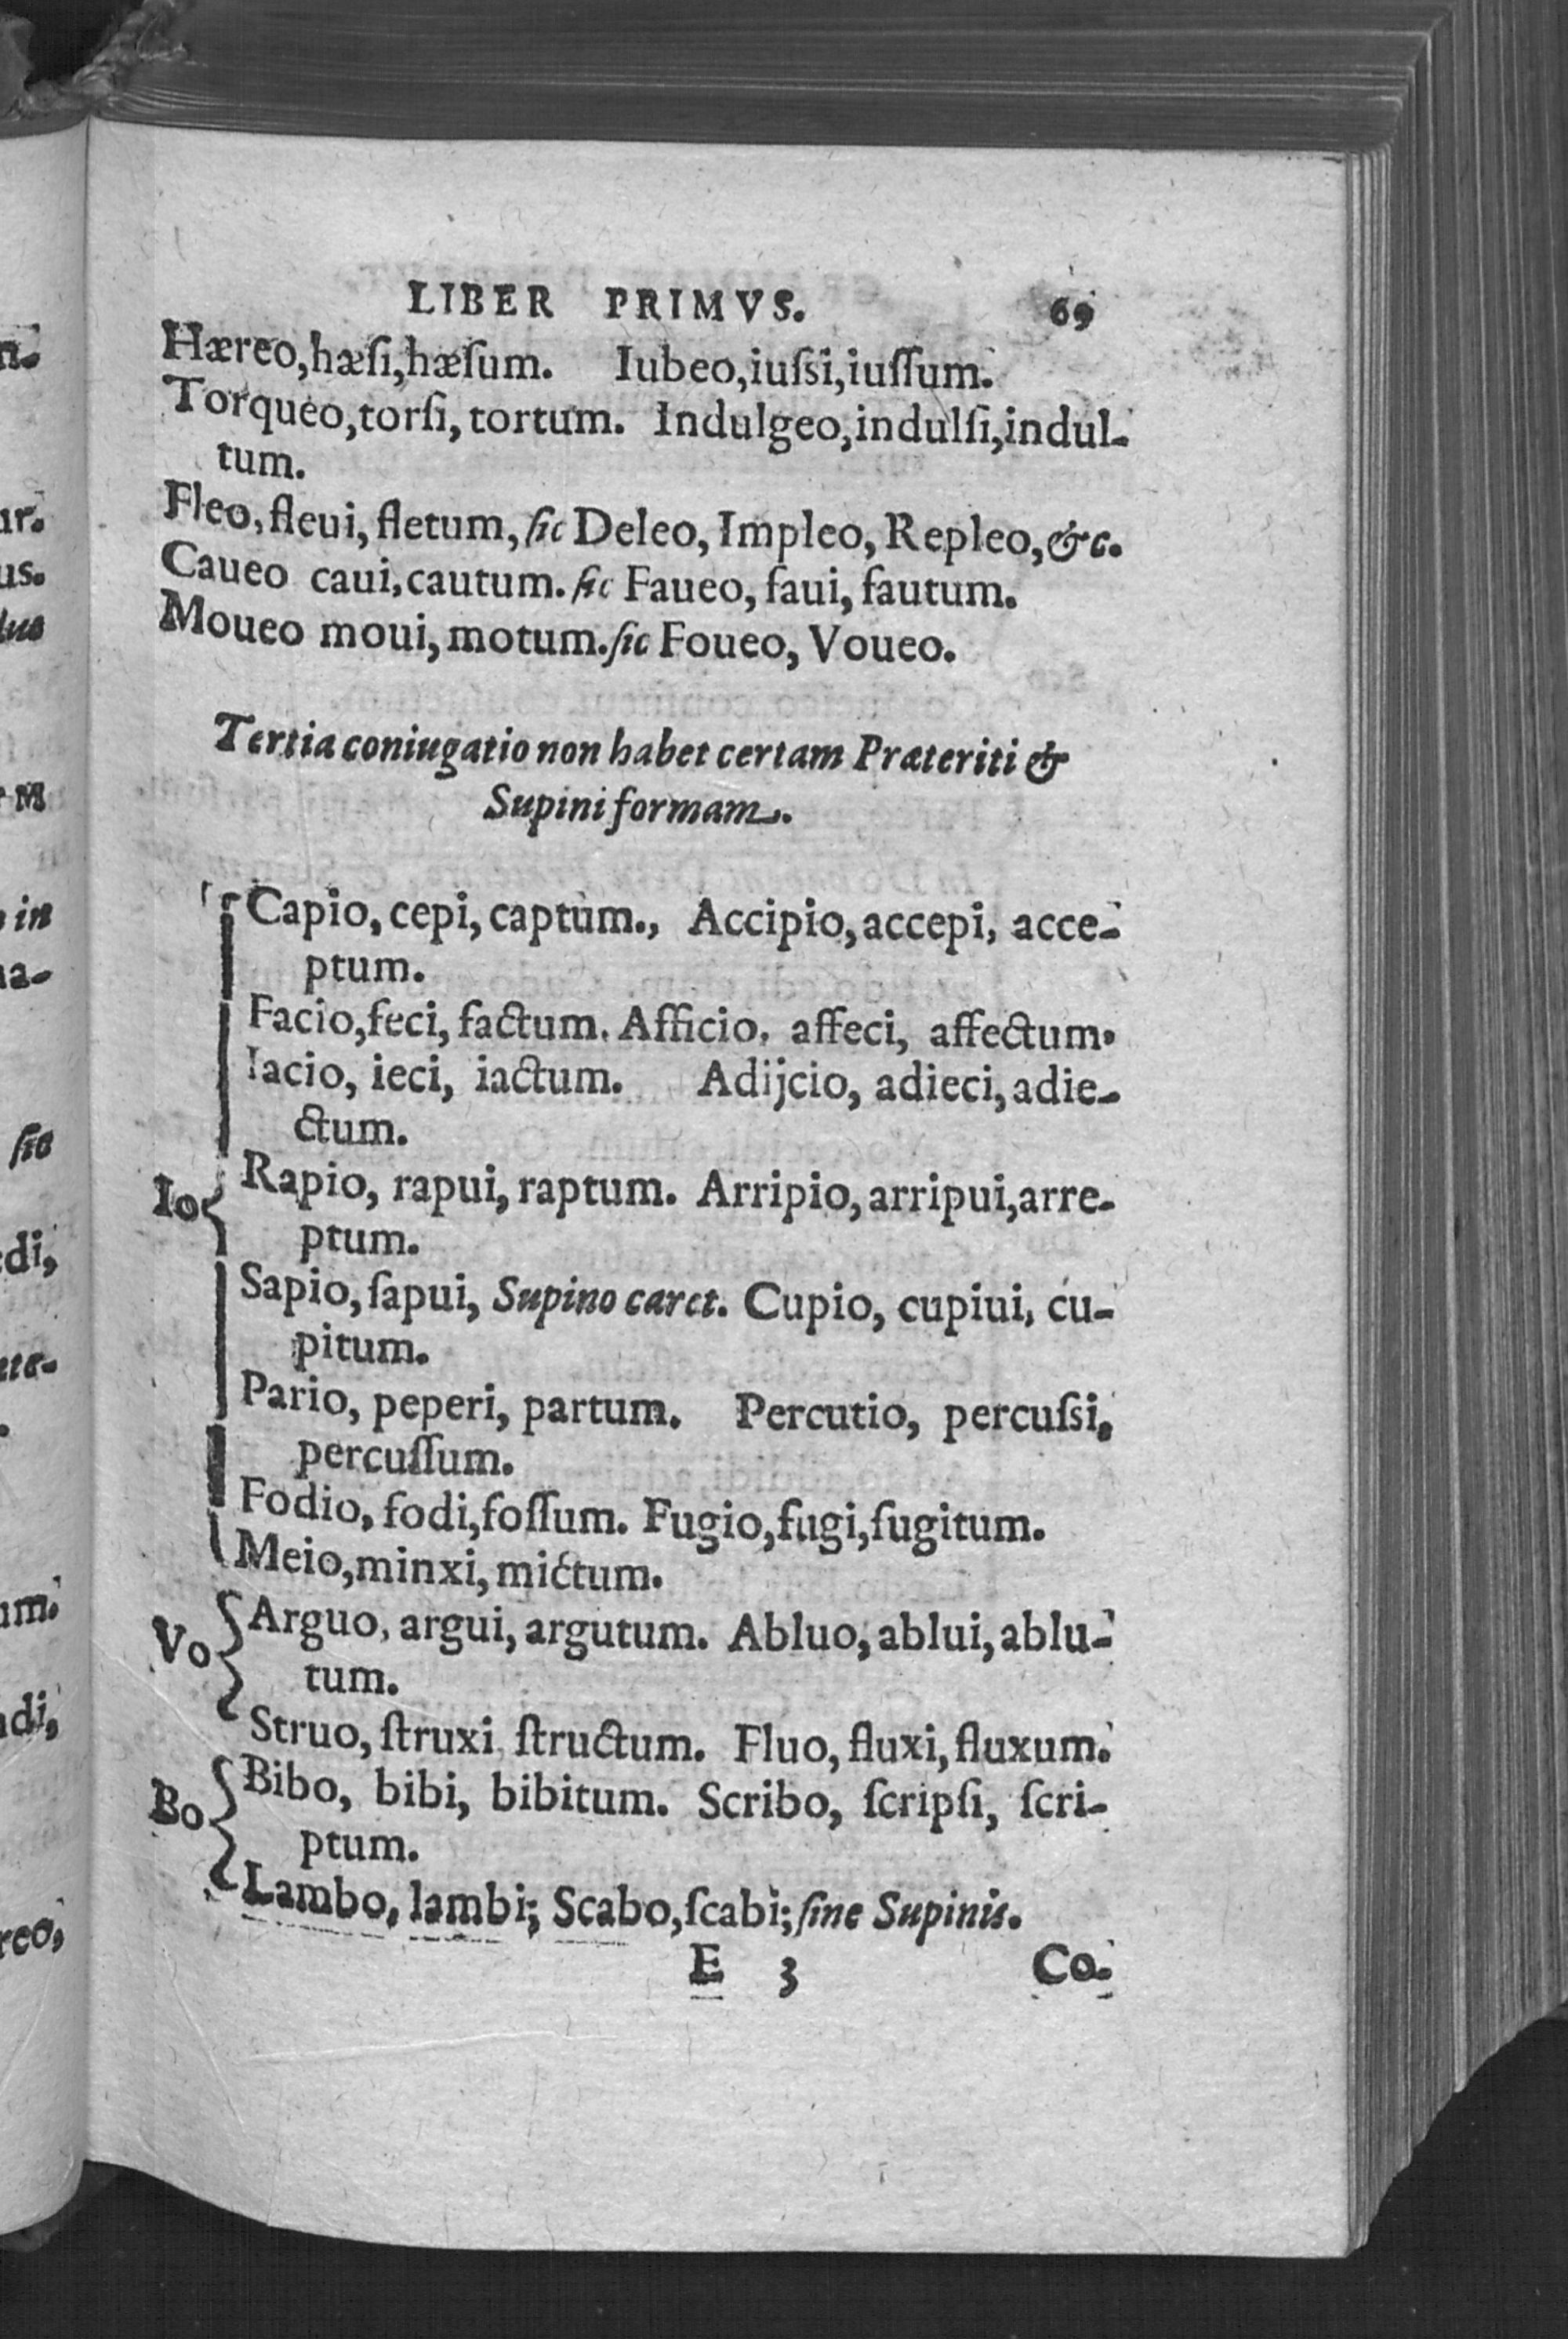 LIBER PRIMVS. 69
Hæreo,hæſi,hæſum. Iubeo,iuſsi,iuſſum.
Torqueo,torſi, tortum. Indulgeo,indulſi,indul-
tum.
Fleo, fleui, fletum, ſic Deleo, Impleo, Repleo, &c.
Caueo caui, cautum. ſic Faueo, faui, fautum.
Moueo moui, motum. ſic Foueo, Voueo.
Tertia coniugatio non habet certam Præteriti &
Supini formam.
Capio, cepi, captum., Accipio, accepi, acce-
ptum.
Facio, feci, factum. Afficio, affeci, affectum.
Iacio, ieci, iactum. Adijcio, adieci, adie-
ctum.
Io Rapio, rapui, raptum. Arripio, arripui, arre-
ptum.
Sapio, ſapui, Supino caret. Cupio, cupiui, cu-
pitum.
Pario, peperi, partum. Percutio, percuſsi,
percuſſum.
Fodio, fodi, foſſum. Fugio, fugi, fugitum.
Meio, minxi, mictum.
Vo Arguo, argui, argutum. Abluo, ablui, ablu-
tum.
Struo, ſtruxi ſtructum. Fluo, fluxi, fluxum.
Bo Bibo, bibi, bibitum. Scribo, ſcripſi, ſcri-
ptum.
Lambo, lambi; Scabo, ſcabi; ſine Supinis.
E 3 Co-